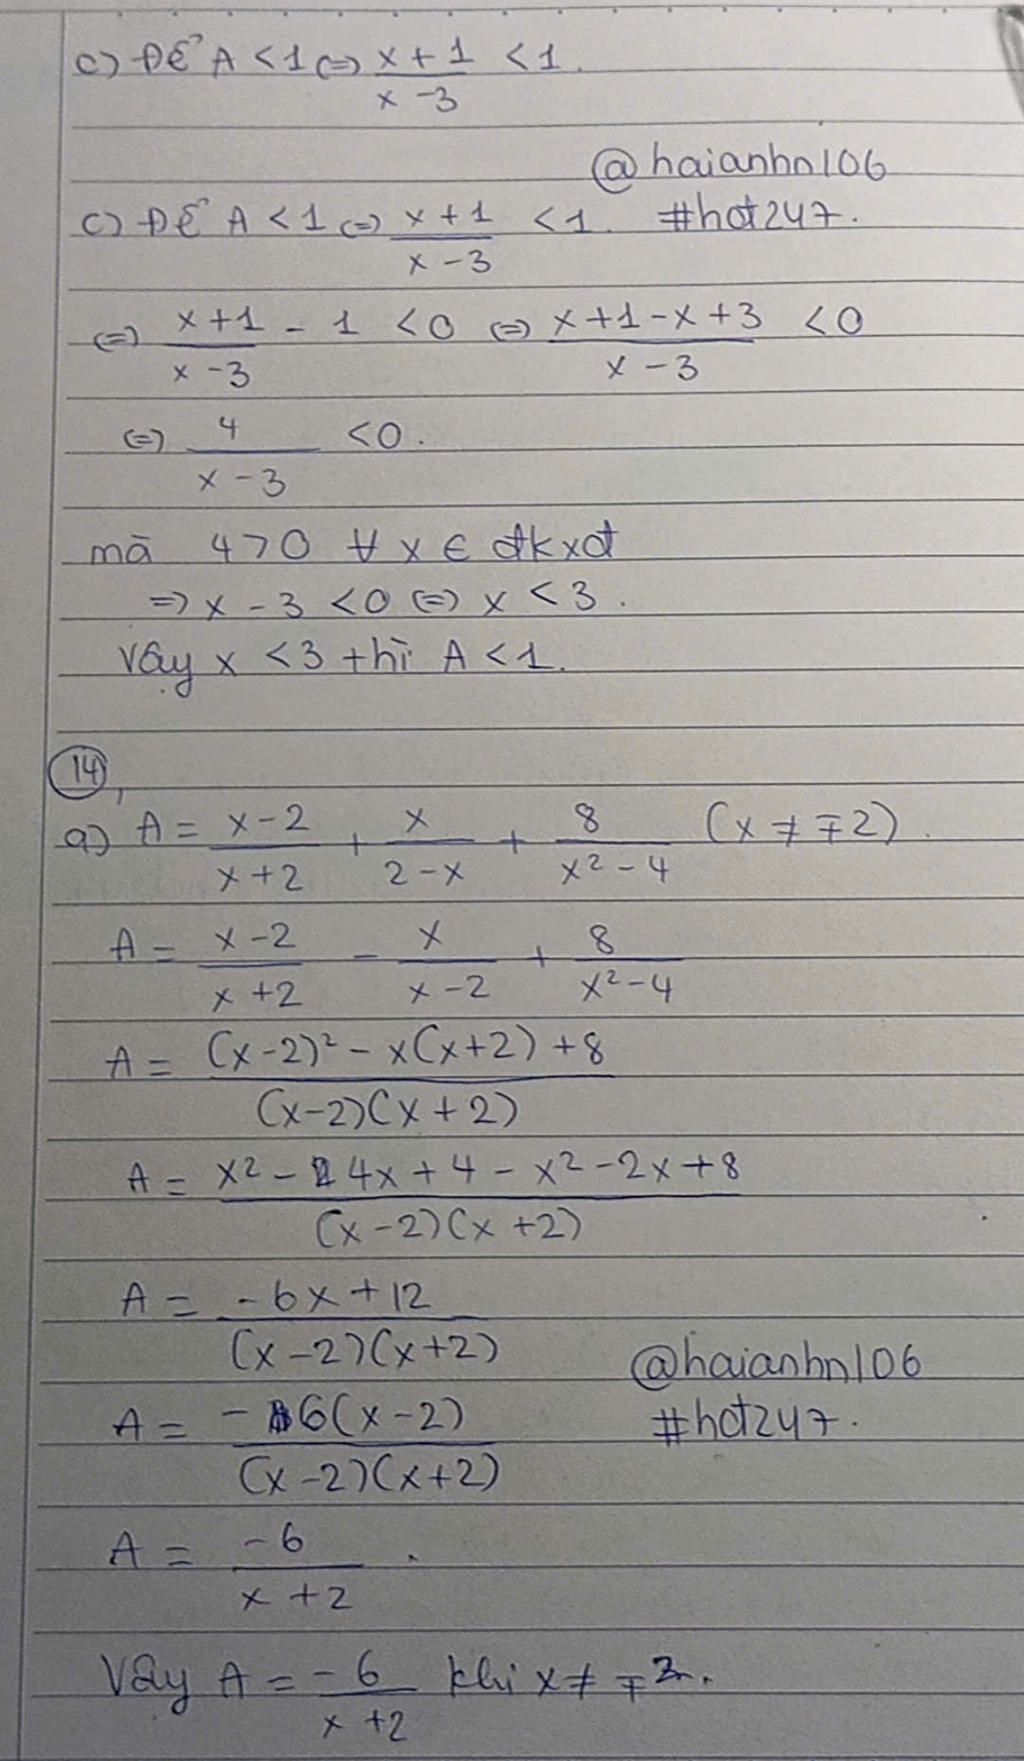 c) ĐỂ A < 1 (=) x + 1 / x - 3 < 1.
@haianhn106
c) ĐỂ A < 1 (=) x + 1 / x - 3 < 1. #hot247.
(=) x + 1 / x - 3 - 1 < 0 (=) x + 1 - x + 3 / x - 3 < 0
(=) 4 / x - 3 < 0.
mà 4 > 0 ∀ x ∈ đkxđ
=> x - 3 < 0 (=) x < 3.
Vậy x < 3 thì A < 1.
14,
a) A = x - 2 / x + 2 + x / 2 - x + 8 / x² - 4 (x ≠ ∓2).
A = x - 2 / x + 2 - x / x - 2 + 8 / x² - 4
A = (x - 2)² - x(x + 2) + 8 / (x - 2)(x + 2)
A = x² - 4x + 4 - x² - 2x + 8 / (x - 2)(x + 2)
A = - 6x + 12 / (x - 2)(x + 2)
@haianhn106
A = - 6(x - 2) / (x - 2)(x + 2) #hot247.
A = - 6 / x + 2.
Vậy A = - 6 / x + 2 khi x ≠ ∓2.